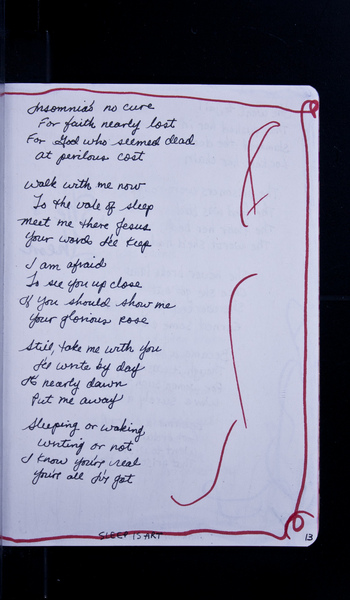 Insomnia's no cure
For faith nearly lost
For God who seemed dead
At perilous cost
Walk with me now
To the vale of sleep
Meet me there Jesus
Your words I'll keep
I am afraid
To see you up close
If you should show me
Your glorious rose
Still, take me with you
I'll write by day
It's nearly dawn
Put me away
Sleeping or waking,
Writing or not
I know you're real
You're all I've got
SLEEP IS ART
13